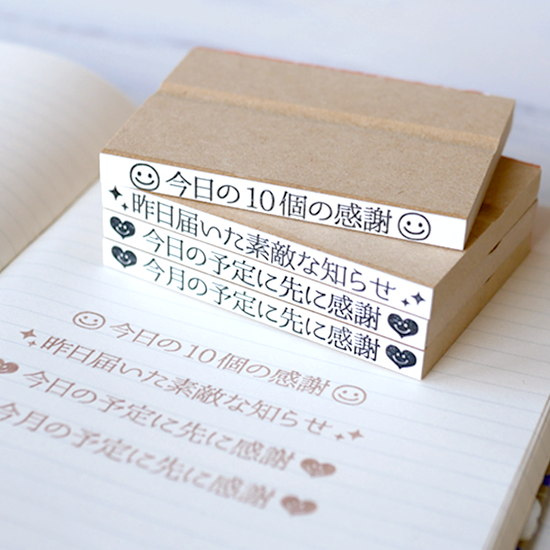 今日の10個の感謝
昨日届いた素敵な知らせ
今日の予定に先に感謝
今月の予定に先に感謝
今日の10個の感謝
昨日届いた素敵な知らせ
今日の予定に先に感謝
今月の予定に先に感謝